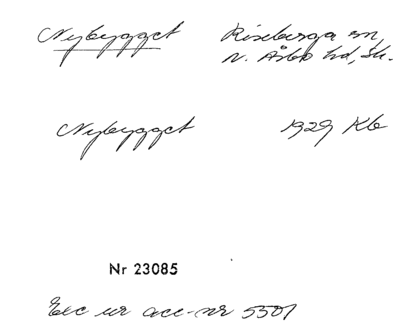 Nybygget Riseberga sn,
N. Åsbo hd, Sk.
Nybygget 1929 Kb
Nr 23085
Exc ur acc-nr 5501